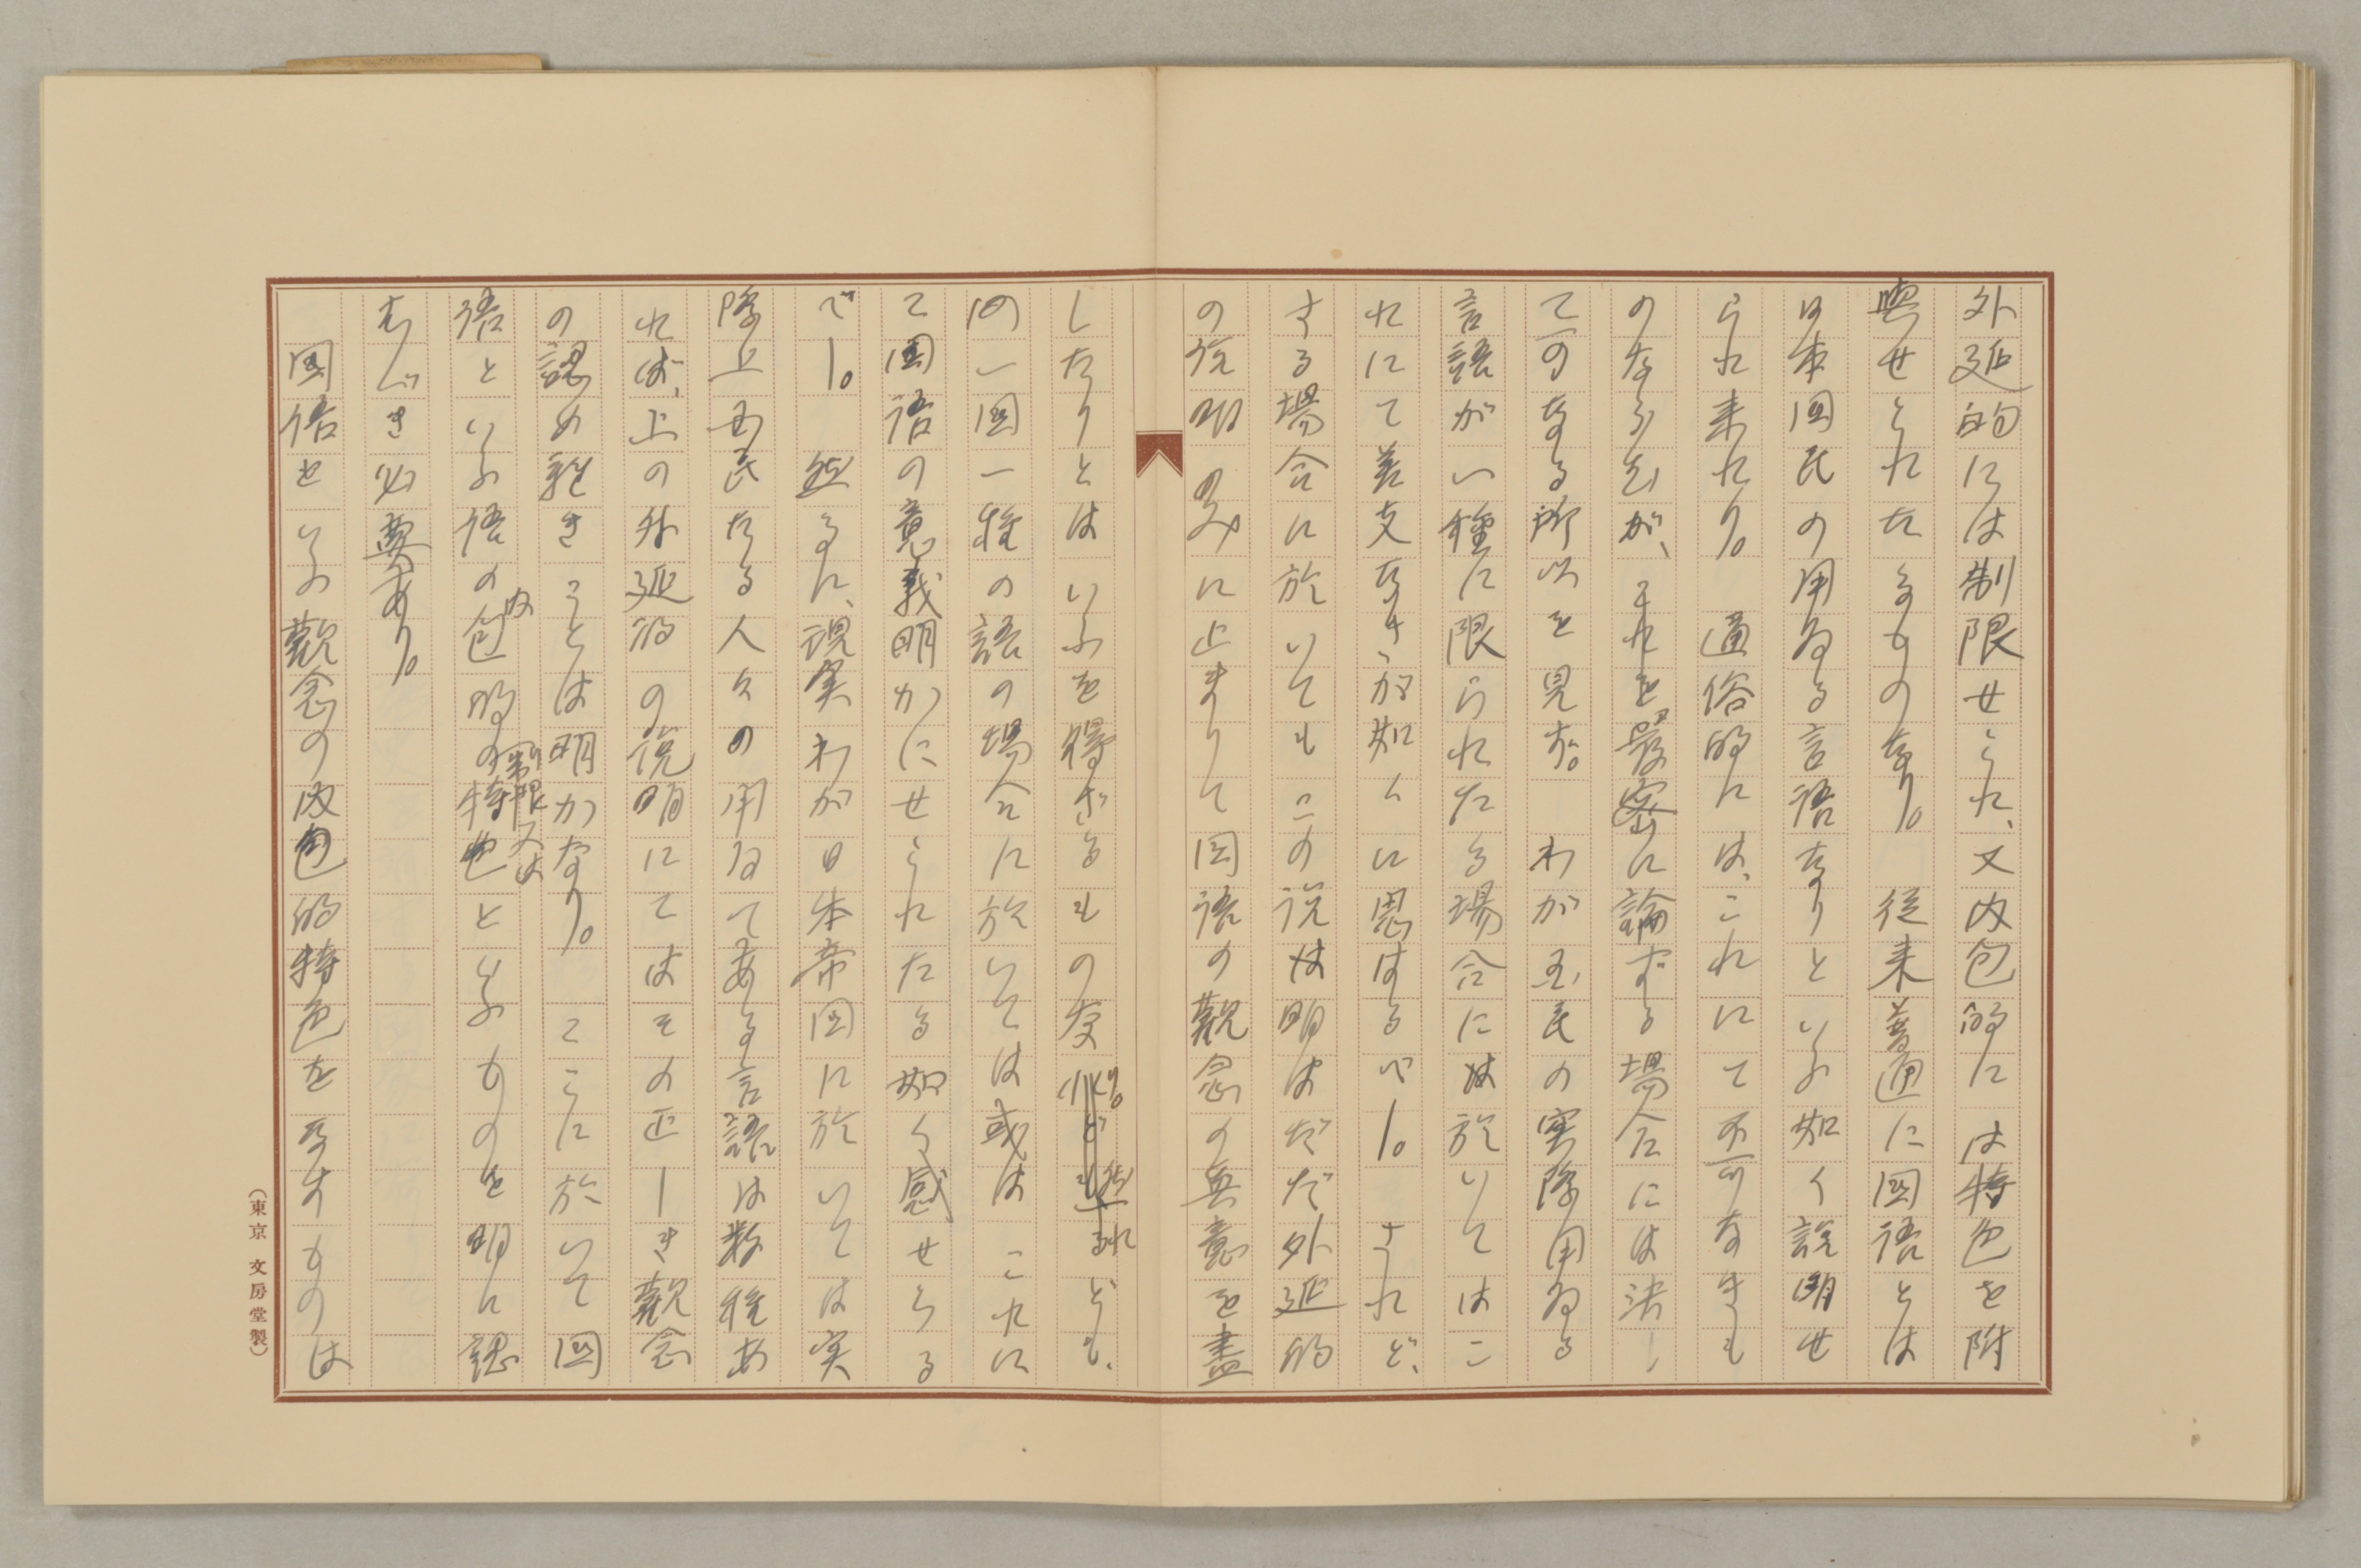 外延的には制限せられ、又内包的には特色を附
與せられたるものなり。従来普通に國語とは
日本国民の用ゐる言語なりといふ如く説明せ
られ来れり。通俗的には、これにて不可なきも
のならむが、それを嚴密に論ずる場合には決し
て可なる所以を見ず。わが国民の実際用ゐる
言語が一種に限られたる場合には於いてはこ
れにて差支なきが如くに思はるべし。されど、
さる場合に於いてもこの説は明はただ外延的
の説明のみに止まりて国語の觀念の真意を盡
したりとはいふを得ざるものなり。然れども、
の一国一種の語の場合に於いては或はこれに
て国語の意義明かにせられたる如く感せらる
べし。然るに、現実わが日本帝国に於いては実
際上国民たる人々の用ゐてある言語は数種あ
れば、上の外延的の説明にてはその正しき觀念
の認め難きことは明かなり。ここに於いて國
語といふ語の内包的の制限又は特色といふものを明に認
むべき必要あり。
國語といふ觀念の内包的特色を示すものは
(東京 文房堂製)